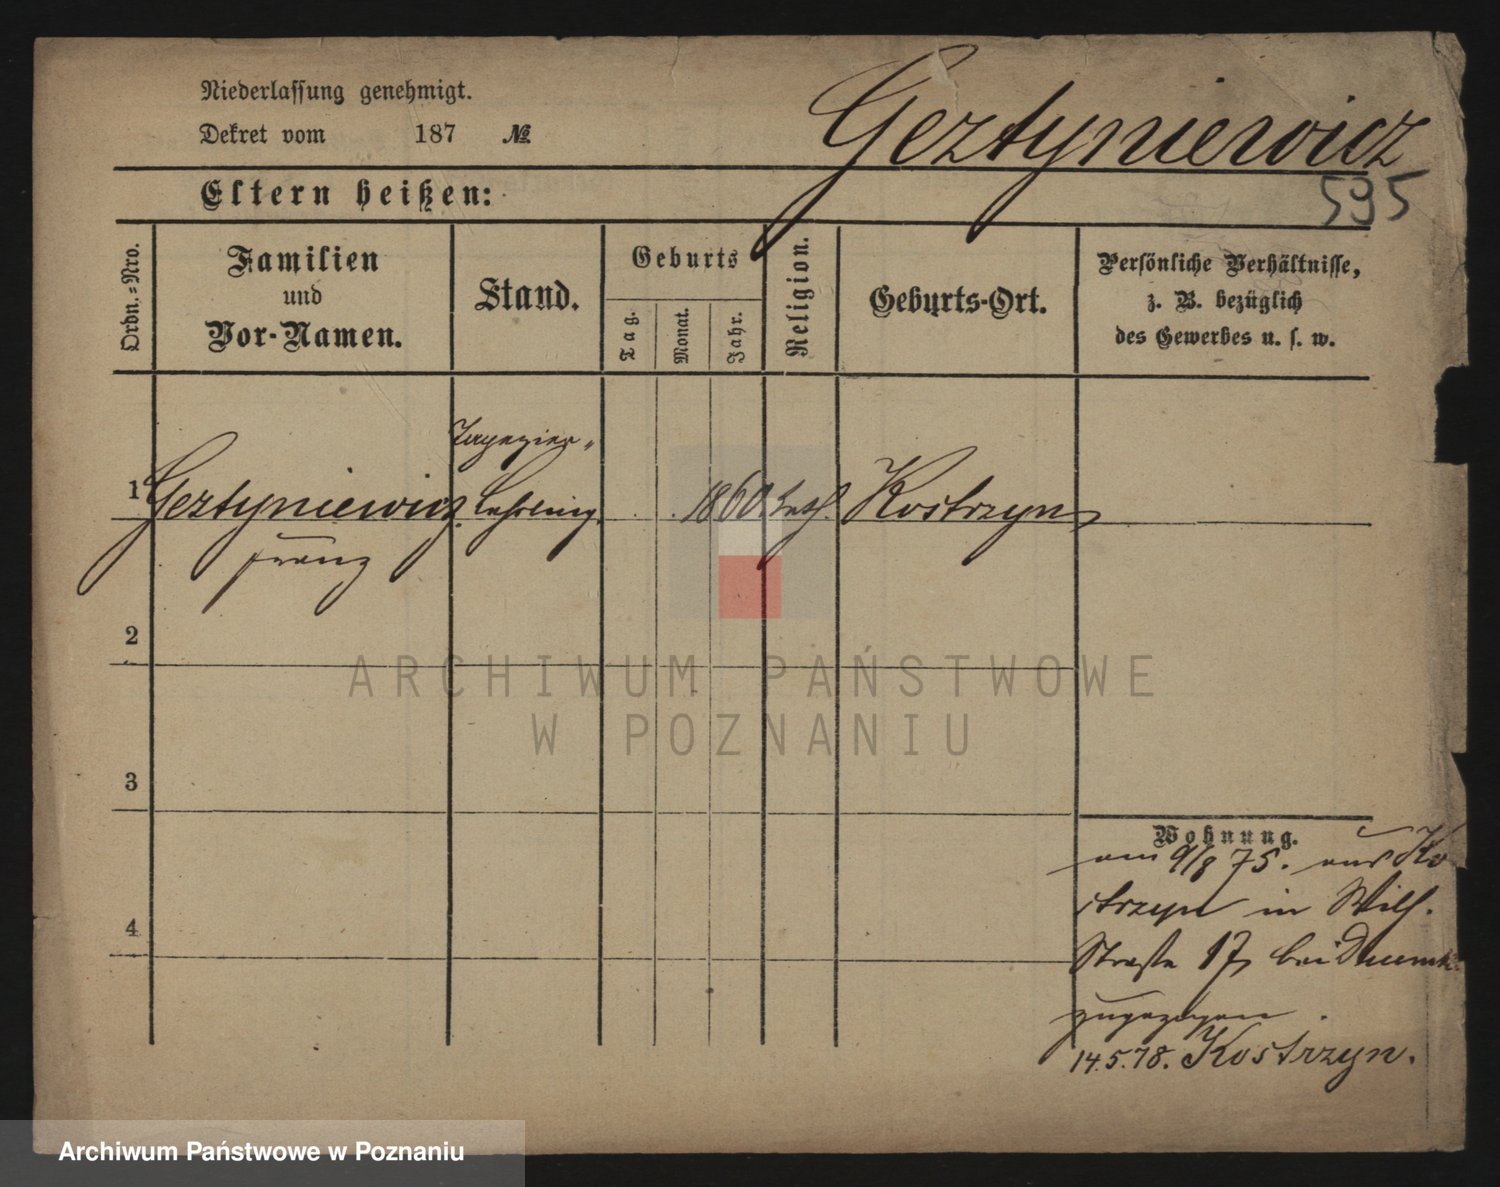 Niederlassung genehmigt.
Dekret vom 187 №
Geztyniewicz
595
Eltern heißen:
Ordn.-Nro.
Familien
und
Vor-Namen.
Stand.
Geburts
Tag.
Monat.
Jahr.
Religion.
Geburts-Ort.
Persönliche Verhältnisse,
z. B. bezüglich
des Gewerbes u. s. w.
Tapezier-
1 Geztyniewicz Lehrling 1860 kath. Kostrzyn
Franz
2
3
4
Wohnung.
am 9/8 75. aus Ko
strzyn in Wilh.
Straße 17 bei
zugezogen.
14.5.78. Kostrzyn.
ARCHIWUM PAŃSTWOWE
W POZNANIU
Archiwum Państwowe w Poznaniu